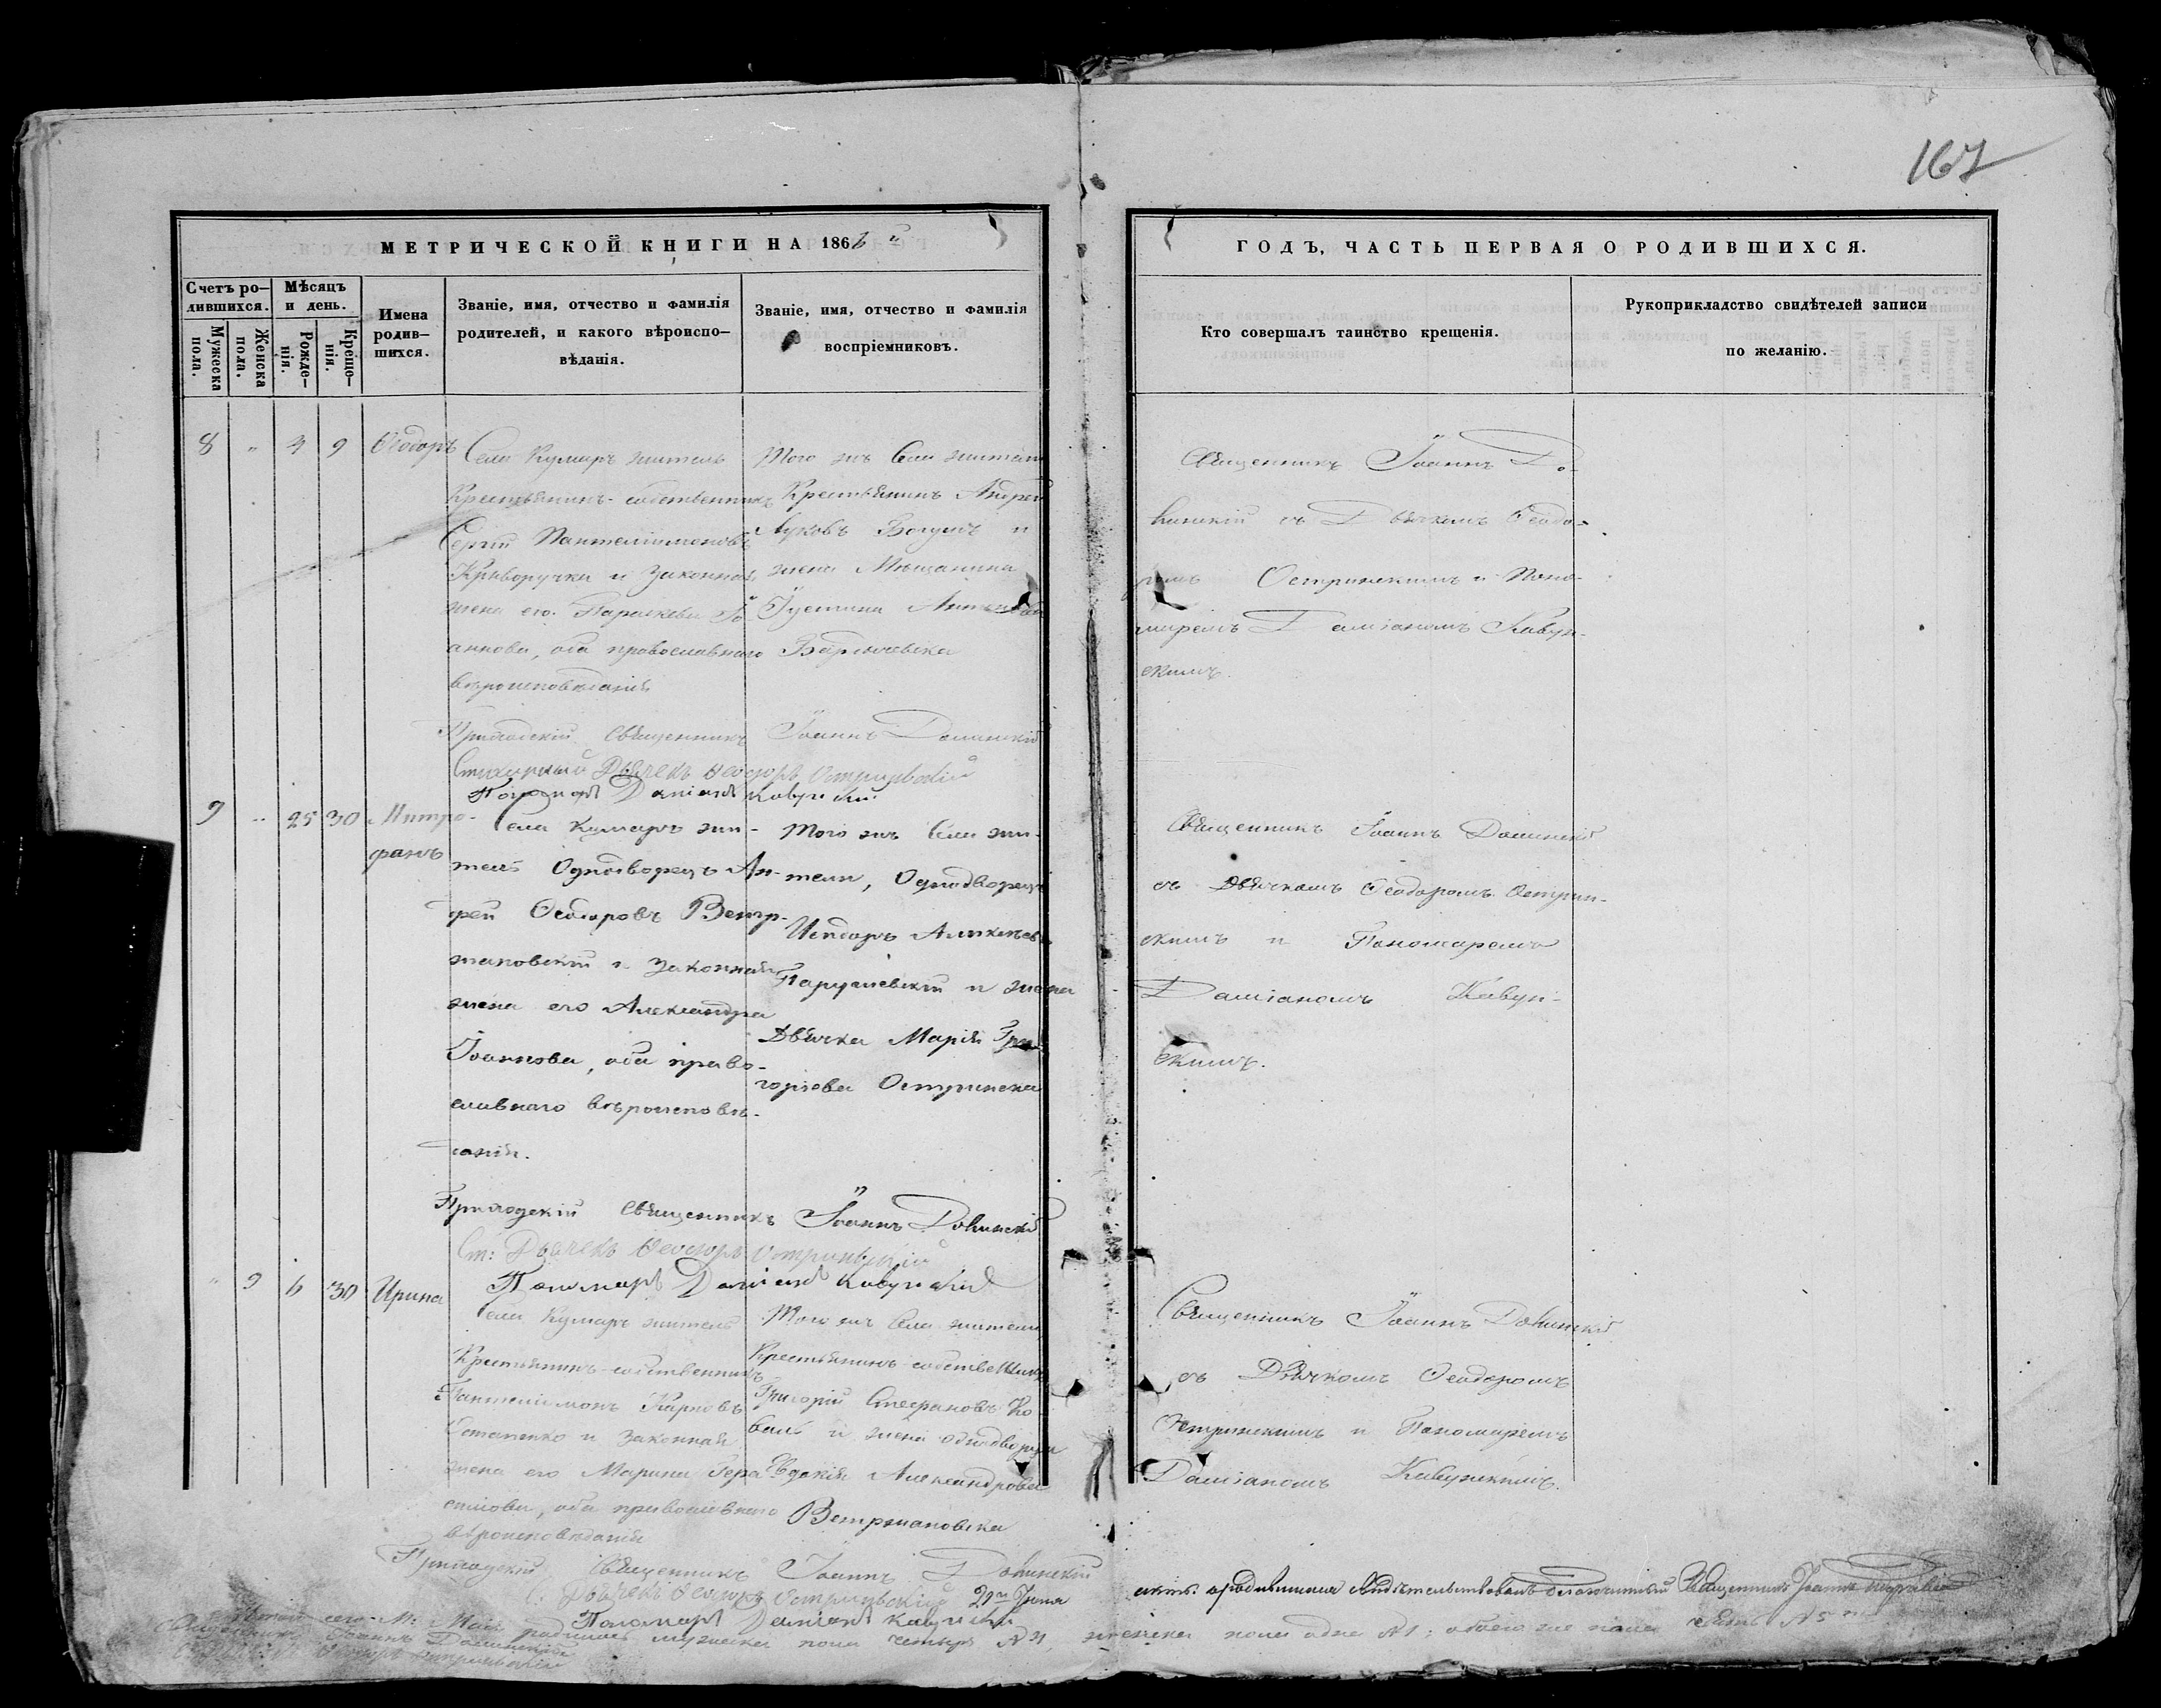 167
МЕТРИЧЕСКОЙ КНИГИ НА 1866 й
ГОДЪ, ЧАСТЬ ПЕРВАЯ О РОДИВШИХСЯ.
Счетъ ро-
дившихся.
Мѣсяцъ
и день.
Мужеска
пола.
Женска
пола.
Рожде-
нія.
Креще-
нія.
Имена
родив-
шихся.
Званіе, имя, отчество и фамилія
родителей, и какого вѣроиспо-
вѣданія.
Званіе, имя, отчество и фамилія
воспріемниковъ.
Кто совершалъ таинство крещенія.
Рукоприкладство свидѣтелей записи
по желанію.
8 " 4 9 Ѳеодоръ
Села Кумаръ житель
Крестьянинъ-собственникъ
Сергій Пантелиимоновъ
Криворучка и законная
жена его Параскева Іо-
аннова, оба православнаго
вѣроисповѣданія
Того жъ Села жители
Крестьянинъ Андрей
Луковъ и
жена Мѣщанина
Іустина
Священникъ Іоаннъ До-
линскій съ Дьячкомъ Ѳеодо-
ромъ Остринскимъ и Поно-
маремъ Даміаномъ Кавун-
скимъ.
Приходскій Священникъ Іоаннъ Долинскій
Стихарный Дьячекъ Ѳеодоръ
Пономарь Даміанъ Кавунскій
9 " 25 30 Митро-
фанъ
Села Кумаръ жи-
тель Однодворецъ Ан-
дрей Ѳеодоровъ Ветр-
жановскій и законная
жена его Александра
Іоаннова, оба право-
славнаго вѣроисповѣ-
данія.
Того жъ Села жи-
тели, Однодворецъ
Исидоръ
и жена
Дьячка Марія Гри-
горіова Остринска
Священникъ Іоаннъ Долинскій
съ Дьячкомъ Ѳеодоромъ Острин-
скимъ и Пономаремъ
Даміаномъ Кавун-
скимъ.
Приходскій Священникъ Іоаннъ Долинскій
Ст: Дьячекъ Ѳеодоръ
Пономарь Даміанъ Кавунскій
" 9 6 30 Ирина
Села Кумаръ житель
Крестьянинъ-собственникъ
Пантелиимонъ Карповъ
Остапенко и законная
жена его Марина Гера-
симова, оба православнаго
вѣроисповѣданія
Того жъ Села жители
Крестьянинъ-собственникъ
Григорій Стефановъ Ко-
валь и жена однодворца
Евдокія Александрова
Ветржановска
Священникъ Іоаннъ Долинскій
съ Дьячкомъ Ѳеодоромъ
Остринскимъ и Пономаремъ
Даміаномъ Кавунскимъ.
Приходскій Священникъ Іоаннъ Долинскій
С. Дьячекъ Ѳеодоръ
Пономарь Даміанъ Кавунскій
родилось мужеска пола четыре № 4, женска пола одна № 1; обоего же пола пять № 5
Священникъ Іоаннъ Долинскій